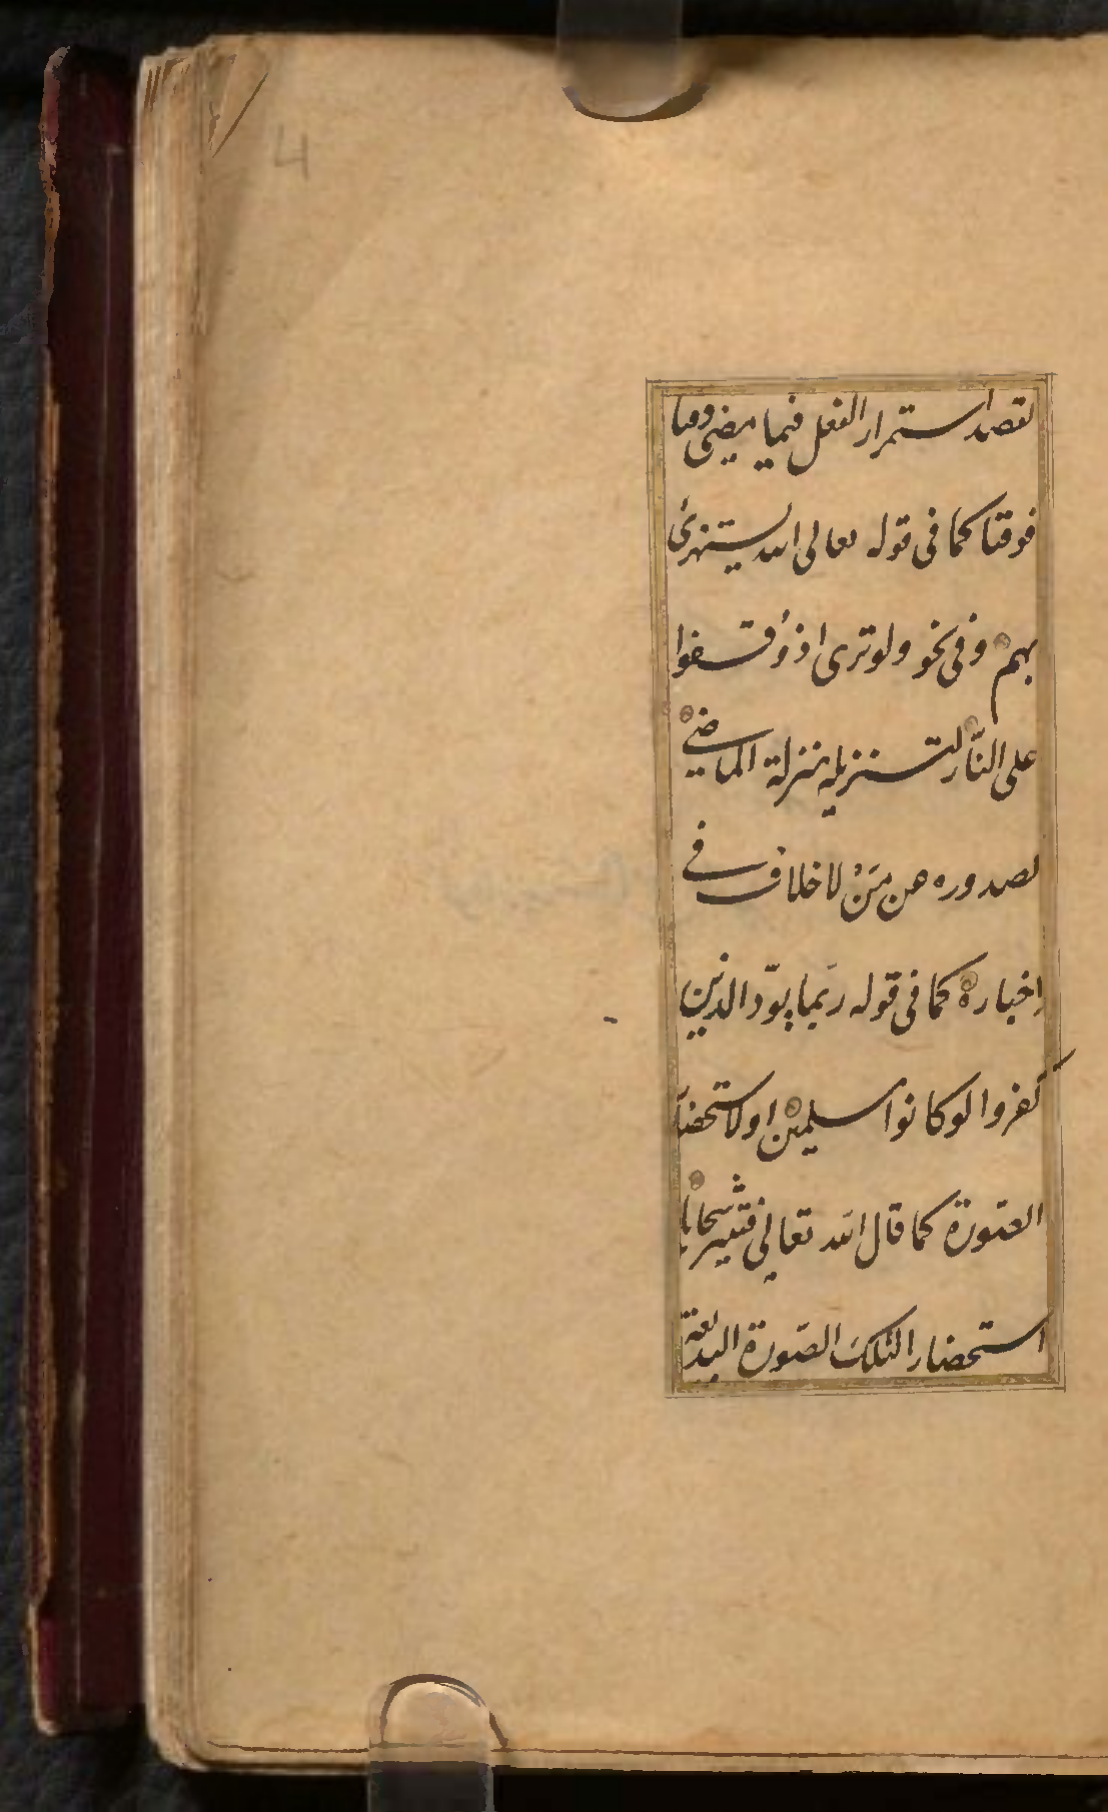 لقصد استمرار الفعل فيما مضى وقتا
فوقتا كما فى قوله تعالى الله يستهزئ
بهم وفى نحو ولو ترى اذ وُقفوا
على النّار لتنزيله منزلة الماضي
لصدوره عن مَنْ لا خلاف في
إخباره كما فى قوله ربَما يودّ الذين
كفروا لو كانوا مسلمين او لاستحضار
الصّورة كما قال الله تعالى فتثير سحابا
استحضارا لتلك الصّورة البديعة